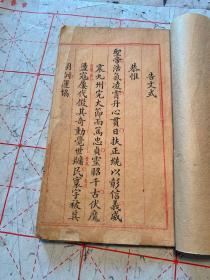 告文式
恭惟
聖帝浩氣凌霄丹心貫日扶正統以彰信義威
震九州完大節而篤忠貞靈昭千古伏魔
蕩寇屢代徵其奇動覺世牖民寰宇被其